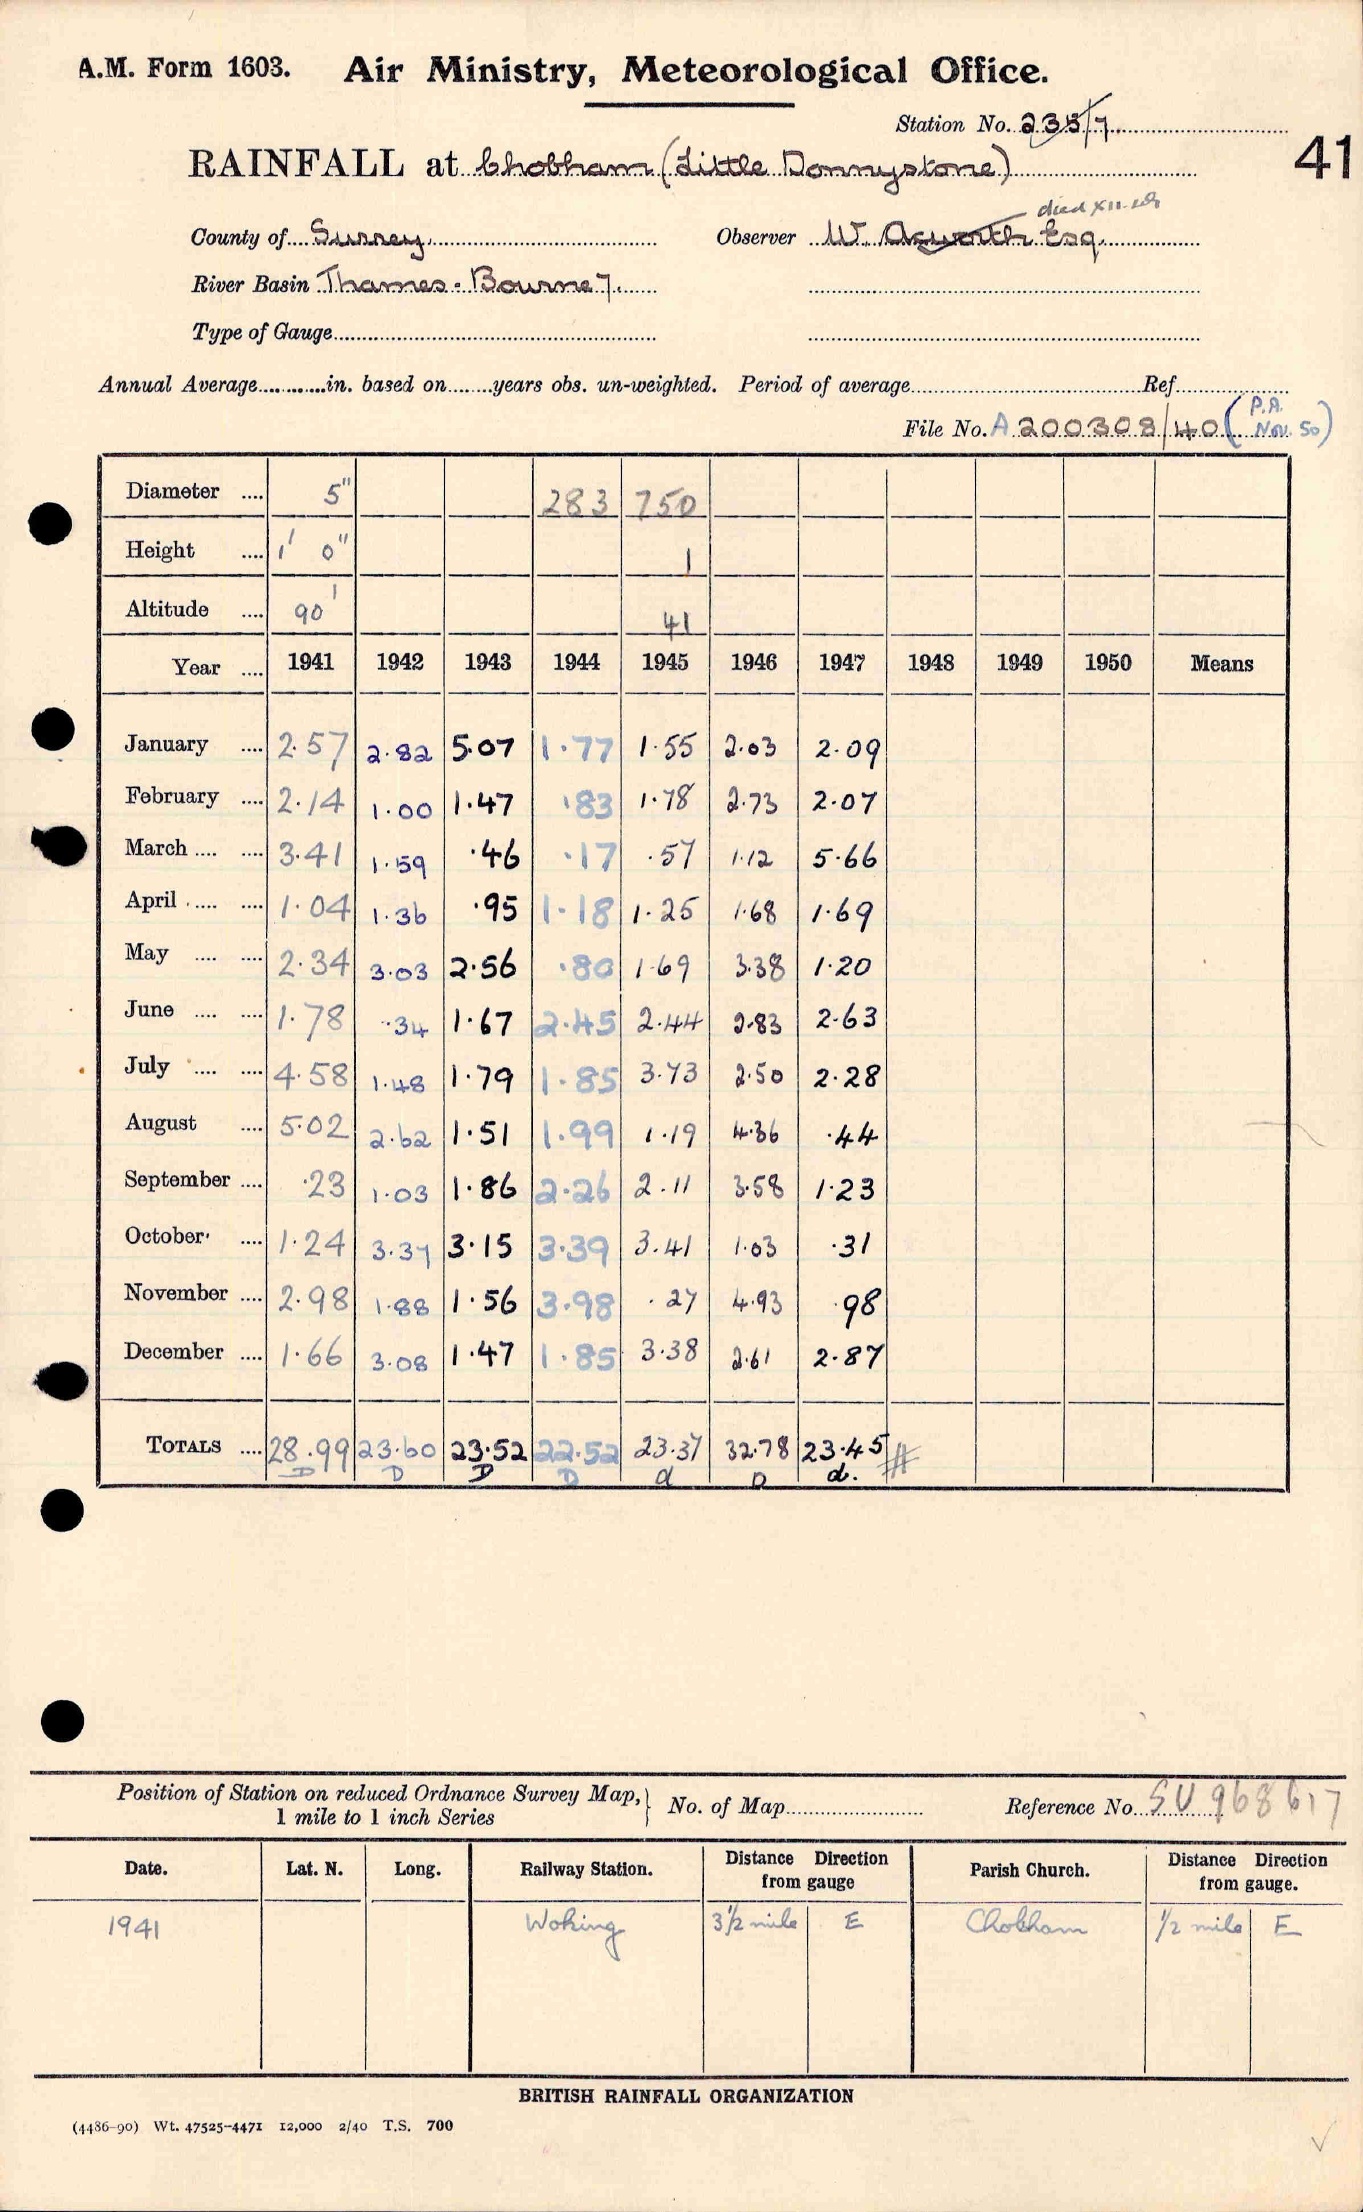 A.M. Form 1603. Air Ministry, Meteorological Office.
Station No. 235/7
41
RAINFALL at Chobham (Little Donnystone)
died XII.
County of Surrey Observer W. Acworth Esq.
River Basin Thames - Bourne 7.
Type of Gauge
Annual Average in. based on years obs. un-weighted. Period of average Ref
File No. A 200308/40 (P.A. Nov. 50)
Diameter 5" 283 750
Height 1' 0" 1
Altitude 90' 41
Year 1941 1942 1943 1944 1945 1946 1947 1948 1949 1950 Means
January 2.57 2.82 5.07 1.77 1.55 2.03 2.09
February 2.14 1.00 1.47 .83 1.78 2.73 2.07
March 3.41 1.59 .46 .17 .57 1.12 5.66
April 1.04 1.36 .95 1.18 1.25 1.68 1.69
May 2.34 3.03 2.56 .80 1.69 3.38 1.20
June 1.78 .34 1.67 2.45 2.44 2.83 2.63
July 4.58 1.48 1.79 1.85 3.73 2.50 2.28
August 5.02 2.62 1.51 1.99 1.19 4.36 .44
September .23 1.03 1.86 2.26 2.11 3.58 1.23
October 1.24 3.37 3.15 3.39 3.41 1.03 .31
November 2.98 1.88 1.56 3.98 .27 4.93 .98
December 1.66 3.08 1.47 1.85 3.38 2.61 2.87
TOTALS 28.99 23.60 23.52 22.52 23.37 32.78 23.45 #
D D D D d D d.
Position of Station on reduced Ordnance Survey Map, 1 mile to 1 inch Series } No. of Map Reference No. SU 968617
Date. Lat. N. Long. Railway Station. Distance Direction from gauge Parish Church. Distance Direction from gauge.
1941 Woking 3½ mile E Chobham ½ mile E
BRITISH RAINFALL ORGANIZATION
(4486-90) Wt. 47525-4471 12,000 2/40 T.S. 700